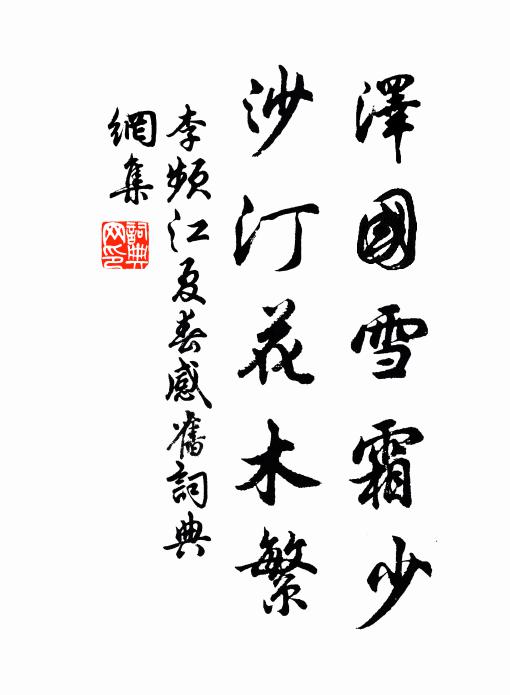 澤國雪霜少
沙汀花木繁
李頻江夏春感舊詞典
網集
詞典网印